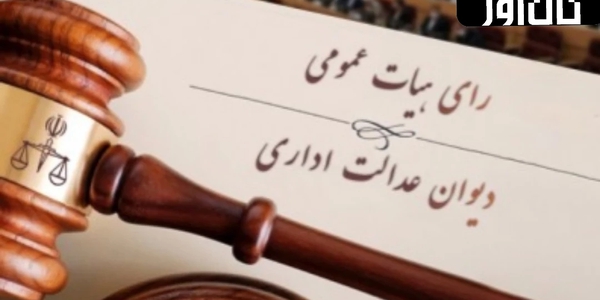 نان‌آور
رای هیات عمومی
دیوان عدالت اداری